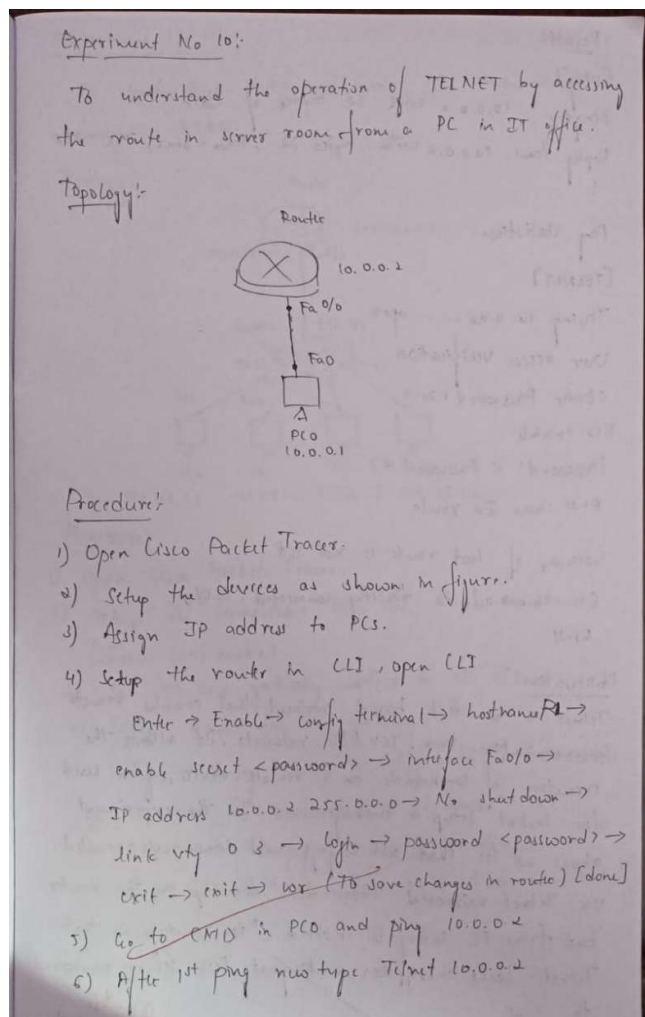 Experiment No 10:-
To understand the operation of TELNET by accessing
the route in server room from a PC in IT office.
Topology:-
Router
10.0.0.2
Fa 0/0
Fa0
PC0
10.0.0.1
Procedure:-
1) Open Cisco Packet Tracer.
2) Setup the devices as shown in figure.
3) Assign IP address to PCs.
4) Setup the router in CLI, open CLI
Enter → Enable → config terminal → hostname R1 →
enable secret <password> → interface Fa0/0 →
IP address 10.0.0.2 255.0.0.0 → No shut down →
link vty 0 3 → login → password <password> →
exit → exit → wr (To save changes in router) [done]
5) Go to CMD in PC0 and ping 10.0.0.2
6) After 1st ping now type Telnet 10.0.0.2